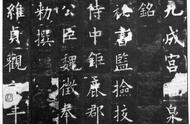 九成宮泉
銘
祕書監撿挍
侍中鉅鹿郡
公臣魏徵奉
勅撰
維貞觀年